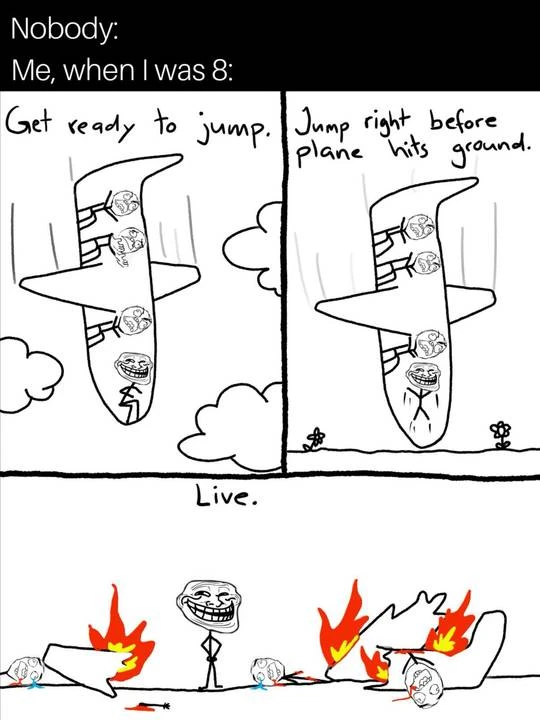 Nobody:
Me, when I was 8:
Get ready to jump.
Jump right before
plane hits ground.
Live.